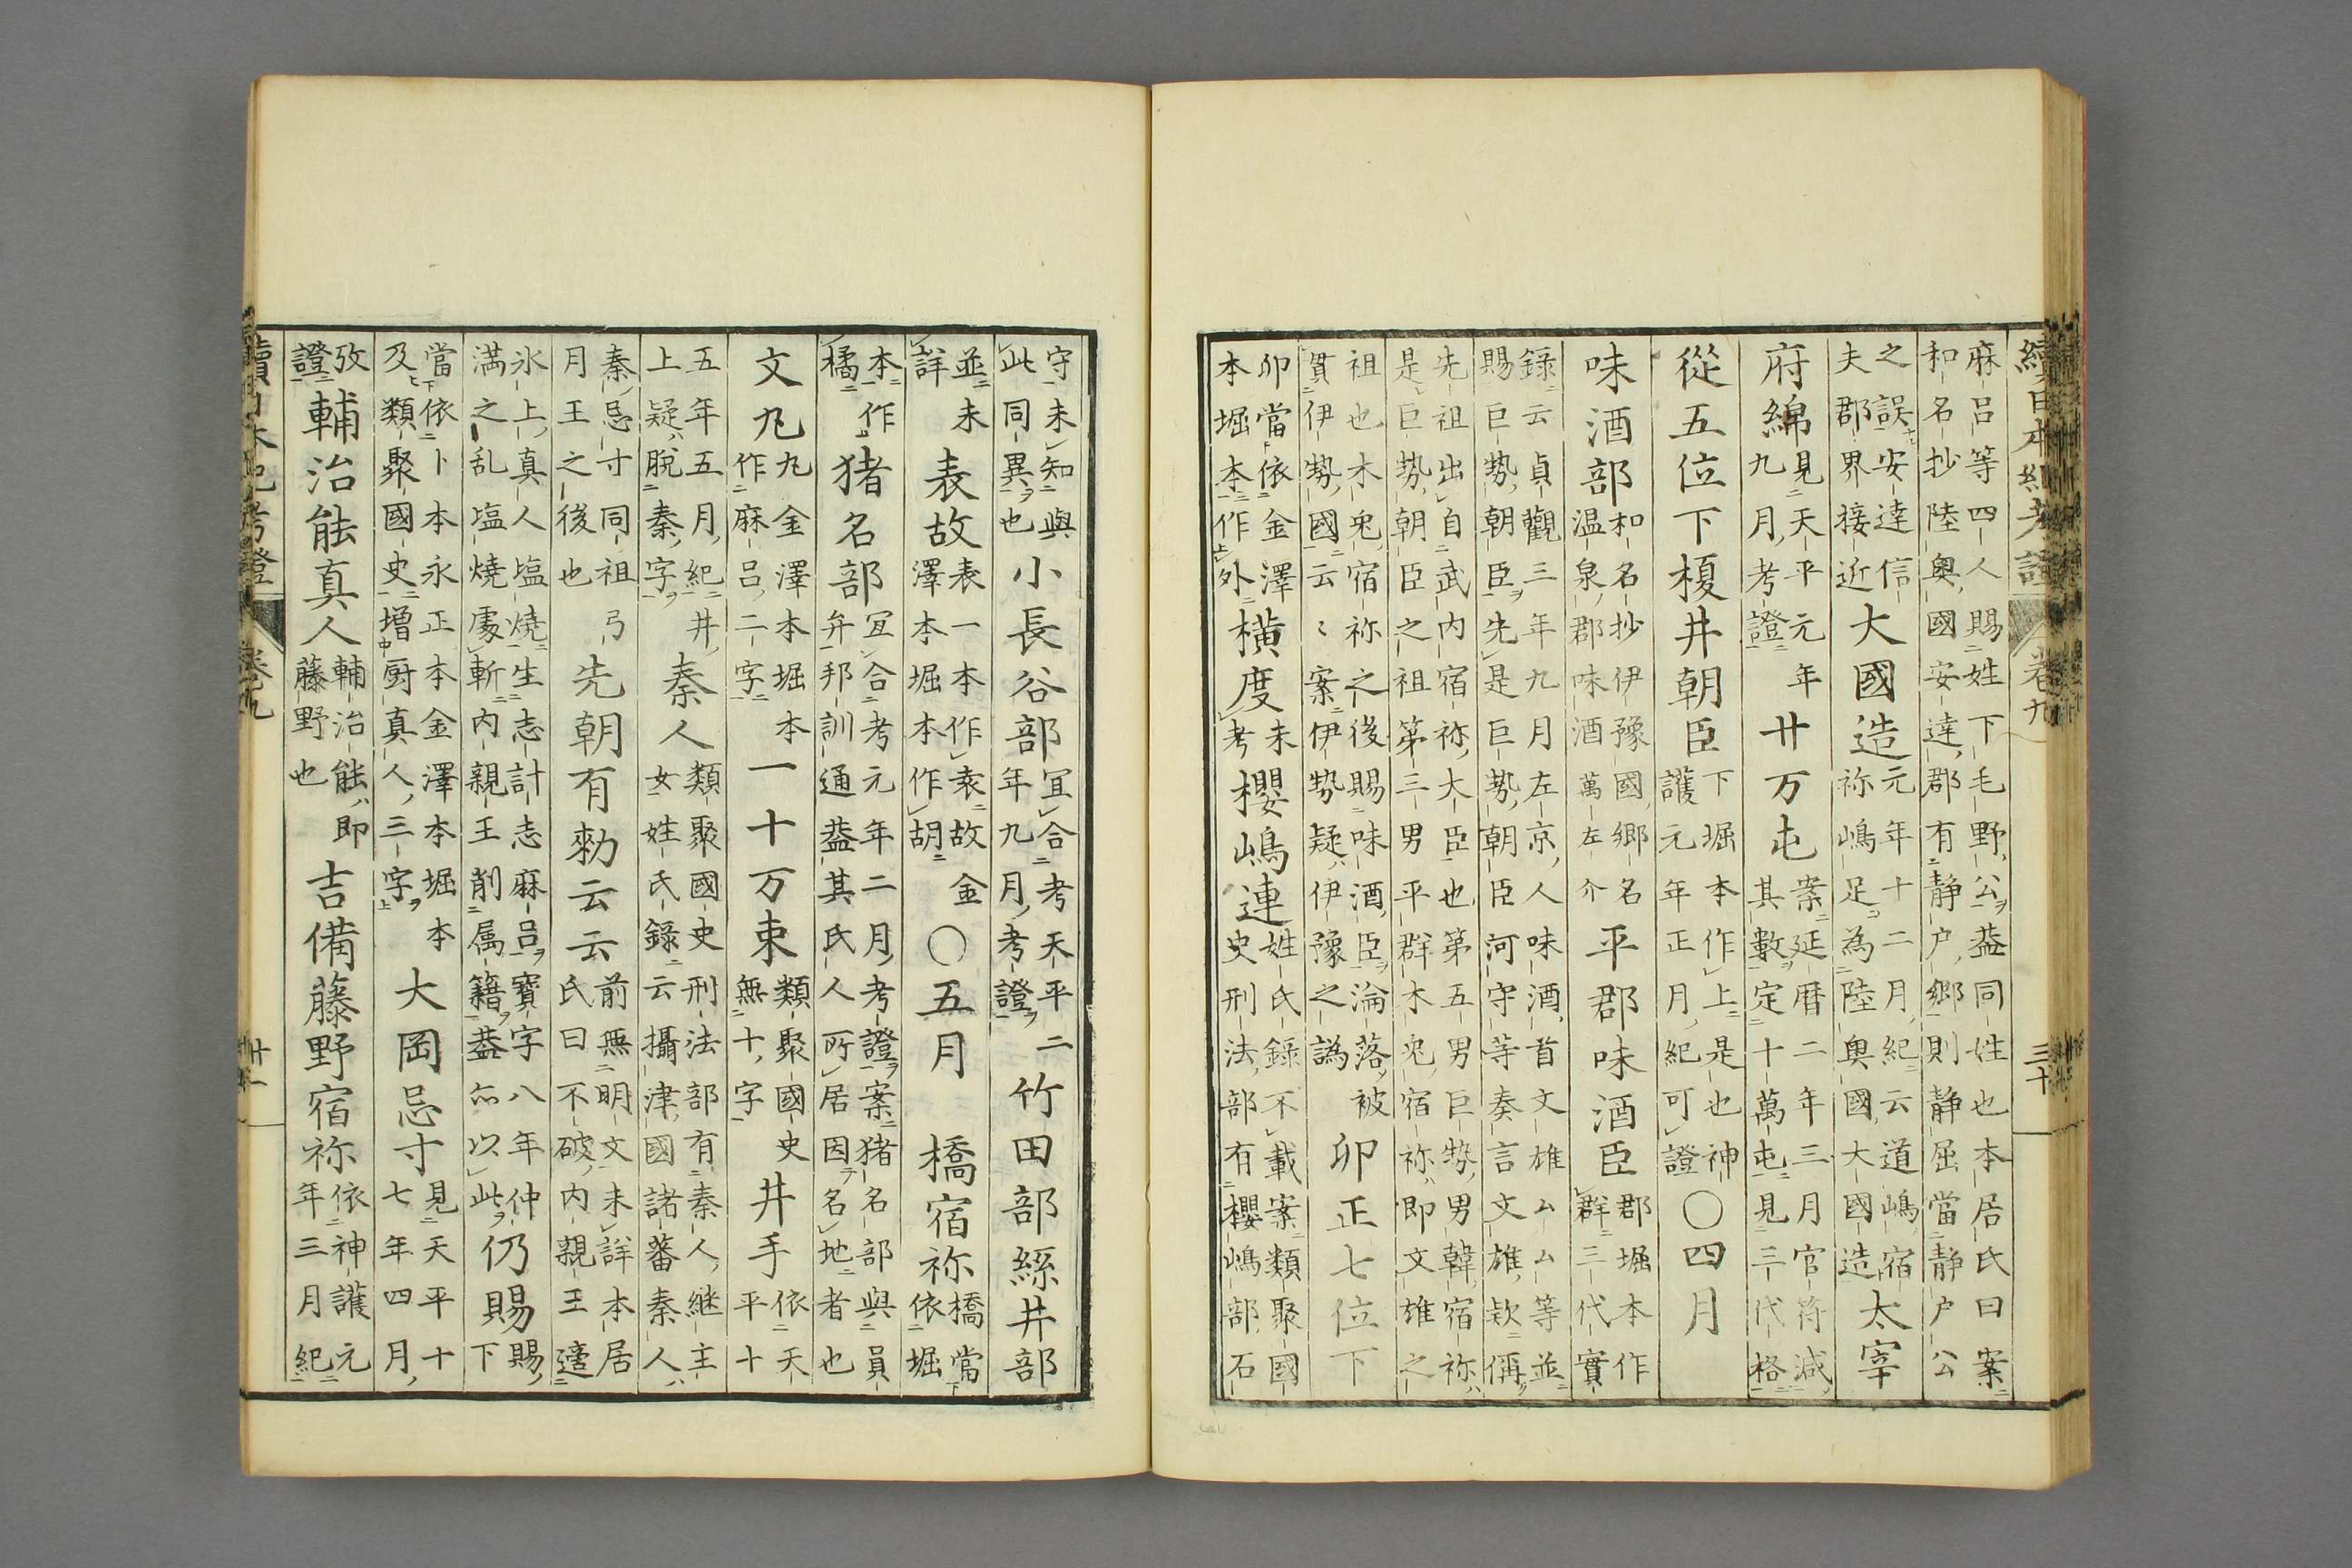 續日本紀考證　卷九　三十
麻呂等四人賜姓下毛野公蓋同姓也本居氏曰案
和名抄陸奧國安達郡有靜戶鄉則靜屈當靜戶公
之誤安達信夫郡界接近大國造元年十二月紀云道嶋宿祢嶋足為陸奧國大國造太宰
府綿見天平元年九月考證廿万屯案延曆二年三月官符減其數定十萬屯見三代格
從五位下榎井朝臣下堀本作上是也神護元年正月紀可證〇四月
味酒部和名抄伊豫國鄉名温泉郡味酒萬左介平郡味酒臣郡堀本作群三代實
錄云貞觀三年九月左京人味酒首文雄ムム等並
賜巨勢朝臣先是巨勢朝臣河守等奏言文雄欵偁
先祖出自武内宿祢大臣也第五男巨勢男韓宿祢
是巨勢朝臣之祖第三男平群木兎宿祢即文雄之
祖也木兎宿祢之後賜味酒臣淪落被貫伊勢國云〻案伊勢疑伊豫之譌卯正七位下
卯當依金澤本堀本作外橫度未考櫻嶋連姓氏錄不載案類聚國史刑法部有櫻嶋部石
守未知與此同異也小長谷部宜合考天平二年九月考證竹田部絲井部
並未詳表故表一本作袁故金澤本堀本作胡〇五月　橋宿祢橋當依堀
本作橘猪名部宜合考元年二月考證案猪名部與員弁邦訓通蓋其氏人所居因名地者也
文丸丸金澤本堀本作麻呂二字一十万束類聚國史無十字井手依天平十
五年五月紀井上疑脫秦字秦人類聚國史刑法部有秦人継主女姓氏錄云攝津國諸蕃秦人
秦忌寸同祖弓月王之後也先朝有勅云云前無明文未詳本居氏曰不破内親王適
氷上真人塩燒生志計志麻呂寶字八年仲満之乱塩燒處斬内親王削属籍蓋亦以此仍賜賜下
當依卜本永正本金澤本堀本及類聚國史増厨真人三字大岡忌寸見天平十七年四月
攷證輔治能真人輔治能即藤野也吉備藤野宿祢依神護元年三月紀
續日本紀考證　卷九　卅一